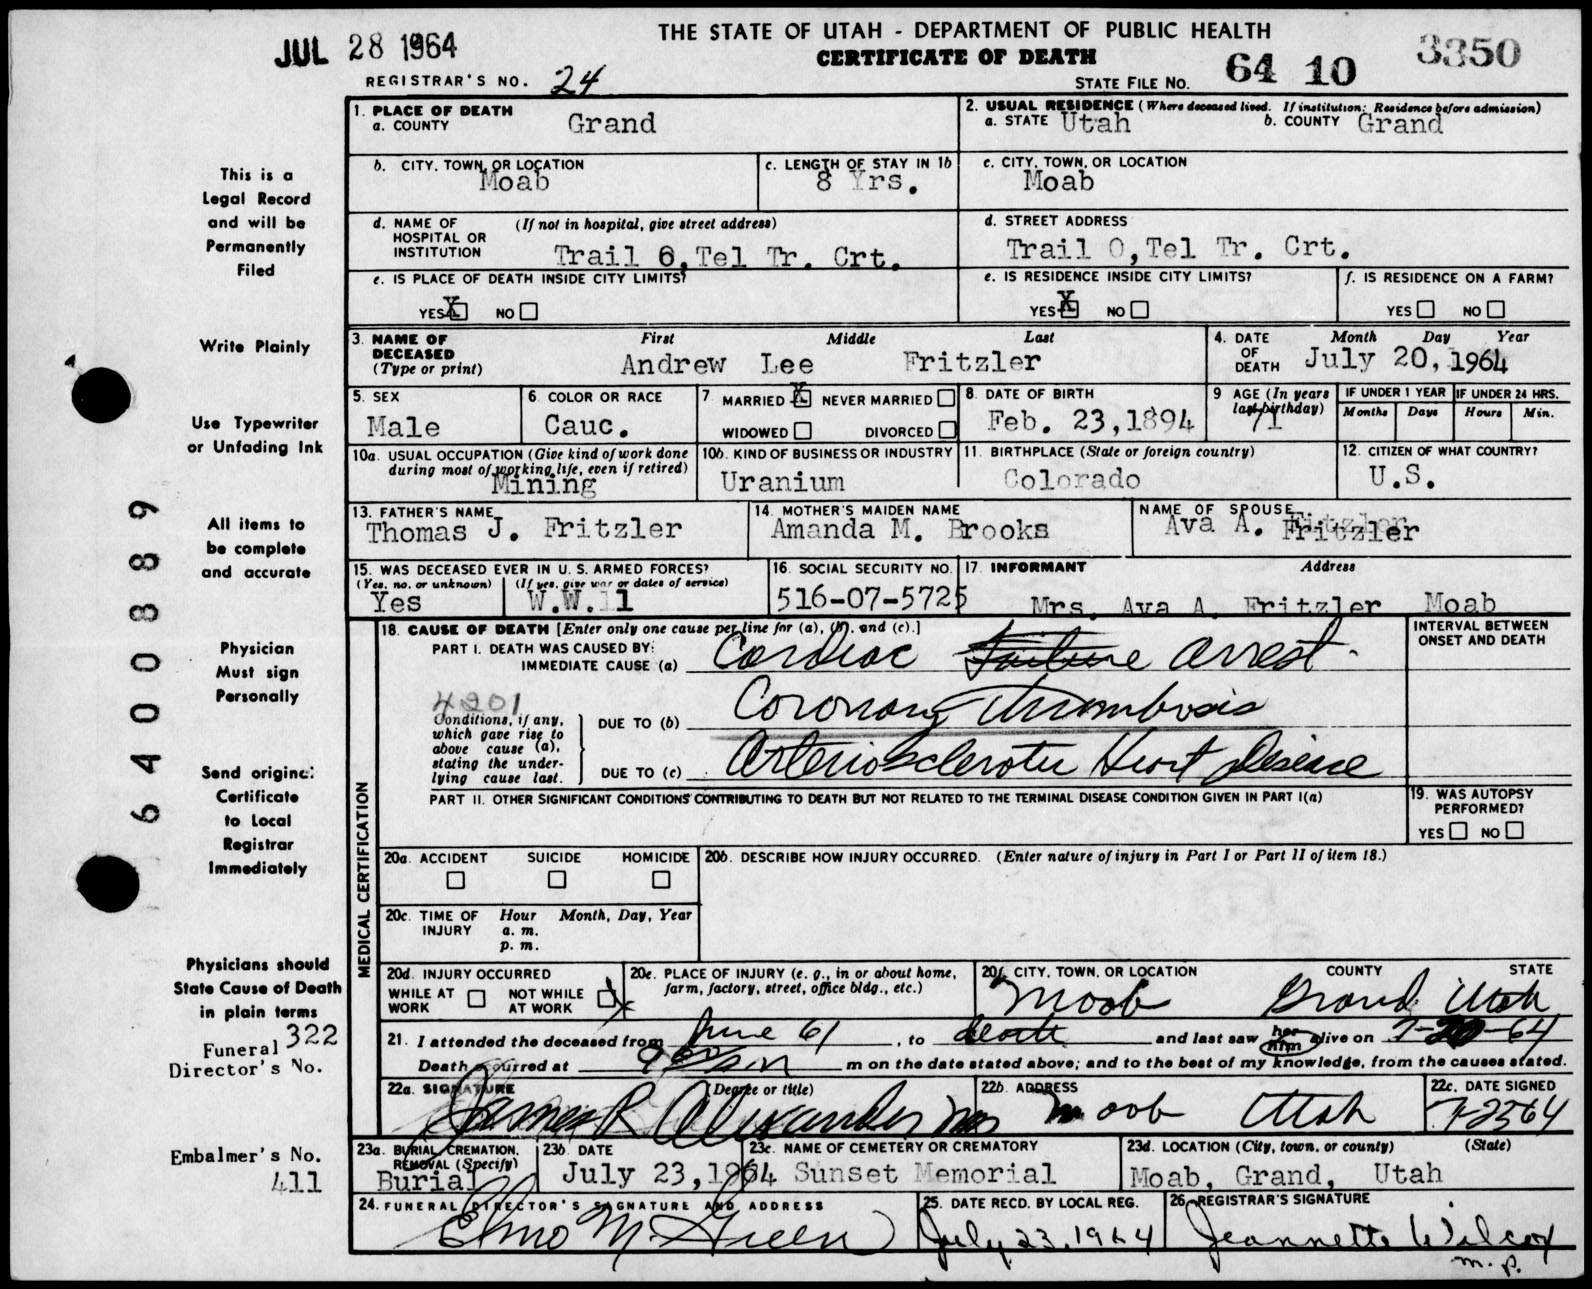 JUL 28 1964
THE STATE OF UTAH - DEPARTMENT OF PUBLIC HEALTH
CERTIFICATE OF DEATH
REGISTRAR'S NO. 24
STATE FILE NO. 64 10 3350
This is a
Legal Record
and will be
Permanently
Filed
Write Plainly
Use Typewriter
or Unfading Ink
All items to
be complete
and accurate
Physician
Must sign
Personally
Send original
Certificate
to Local
Registrar
Immediately
Physicians should
State Cause of Death
in plain terms
Funeral 322
Director's No.
Embalmer's No.
411
6400889
1. PLACE OF DEATH
a. COUNTY Grand
2. USUAL RESIDENCE (Where deceased lived. If institution: Residence before admission)
a. STATE Utah b. COUNTY Grand
b. CITY, TOWN, OR LOCATION
Moab
c. LENGTH OF STAY IN 1b
8 Yrs.
c. CITY, TOWN, OR LOCATION
Moab
d. NAME OF HOSPITAL OR INSTITUTION (If not in hospital, give street address)
Trail 6, Tel Tr. Crt.
d. STREET ADDRESS
Trail O, Tel Tr. Crt.
e. IS PLACE OF DEATH INSIDE CITY LIMITS?
YES X NO
e. IS RESIDENCE INSIDE CITY LIMITS?
YES X NO
f. IS RESIDENCE ON A FARM?
YES NO
3. NAME OF DECEASED (Type or print)
First Middle Last
Andrew Lee Fritzler
4. DATE OF DEATH Month Day Year
July 20, 1964
5. SEX
Male
6. COLOR OR RACE
Cauc.
7 MARRIED X NEVER MARRIED
WIDOWED DIVORCED
8. DATE OF BIRTH
Feb. 23, 1894
9 AGE (In years last birthday)
71
IF UNDER 1 YEAR
Months Days
IF UNDER 24 HRS.
Hours Min.
10a. USUAL OCCUPATION (Give kind of work done during most of working life, even if retired)
Mining
10b. KIND OF BUSINESS OR INDUSTRY
Uranium
11. BIRTHPLACE (State or foreign country)
Colorado
12. CITIZEN OF WHAT COUNTRY?
U.S.
13. FATHER'S NAME
Thomas J. Fritzler
14. MOTHER'S MAIDEN NAME
Amanda M. Brooks
NAME OF SPOUSE
Ava A. Fritzler
15. WAS DECEASED EVER IN U. S. ARMED FORCES?
(Yes, no. or unknown) (If yes, give war or dates of service)
Yes W.W. 1
16. SOCIAL SECURITY NO.
516-07-5725
17. INFORMANT Address
Mrs. Ava A. Fritzler Moab
MEDICAL CERTIFICATION
18. CAUSE OF DEATH [Enter only one cause per line for (a), (b), and (c).]
INTERVAL BETWEEN ONSET AND DEATH
PART I. DEATH WAS CAUSED BY:
IMMEDIATE CAUSE (a) Cardiac Failure arrest.
4201
Conditions, if any, which gave rise to above cause (a), stating the underlying cause last.
DUE TO (b) Coronary Thrombosis
DUE TO (c) Arteriosclerotic Heart Disease
PART II. OTHER SIGNIFICANT CONDITIONS CONTRIBUTING TO DEATH BUT NOT RELATED TO THE TERMINAL DISEASE CONDITION GIVEN IN PART I(a)
19. WAS AUTOPSY PERFORMED?
YES NO
20a. ACCIDENT SUICIDE HOMICIDE
20b. DESCRIBE HOW INJURY OCCURRED. (Enter nature of injury in Part I or Part II of item 18.)
20c. TIME OF INJURY Hour Month, Day, Year
a. m.
p. m.
20d. INJURY OCCURRED
WHILE AT WORK NOT WHILE AT WORK X
20e. PLACE OF INJURY (e. g., in or about home, farm, factory, street, office bldg., etc.)
20f. CITY, TOWN, OR LOCATION COUNTY STATE
Moab Grand Utah
21. I attended the deceased from June 61, to death and last saw her him alive on 7-20-64
Death occurred at m on the date stated above; and to the best of my knowledge, from the causes stated.
22a. SIGNATURE (Degree or title)
James R Alexander MD
22b. ADDRESS
Moab Utah
22c. DATE SIGNED
7-2364
23a. BURIAL, CREMATION, REMOVAL (Specify)
Burial
23b. DATE
July 23, 1964
23c. NAME OF CEMETERY OR CREMATORY
Sunset Memorial
23d. LOCATION (City, town, or county) (State)
Moab, Grand, Utah
24. FUNERAL DIRECTOR'S SIGNATURE AND ADDRESS
Elmo M. Green
25. DATE RECD. BY LOCAL REG.
July 23, 1964
26. REGISTRAR'S SIGNATURE
Jeannette Wilcox
m.p.